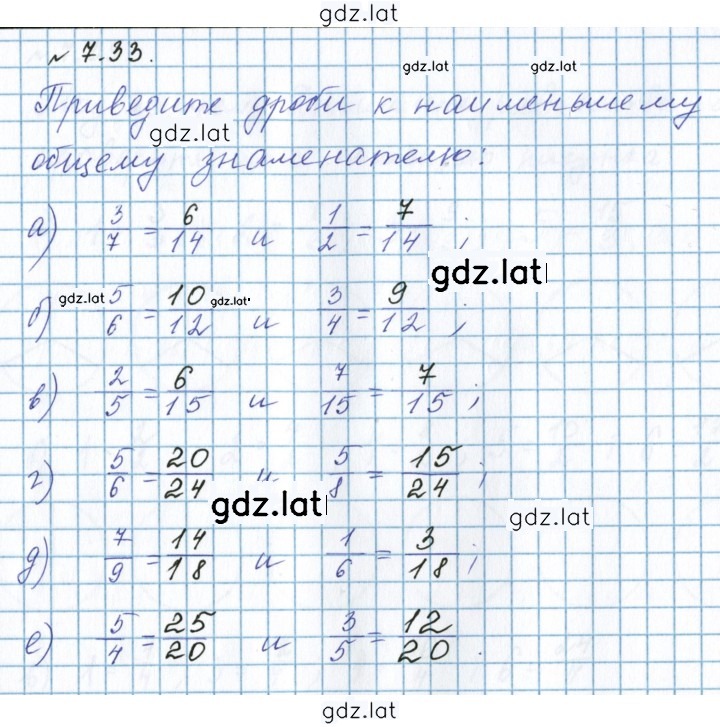 gdz.lat
№ 7.33.
gdz.lat gdz.lat
Приведите дроби к наименьшему
gdz.lat
общему знаменателю:
а) 3/7 = 6/14 и 1/2 = 7/14 ;
gdz.lat
б) gdz.lat 5/6 = 10/12 gdz.lat и 3/4 = 9/12 ;
в) 2/5 = 6/15 и 7/15 = 7/15 ;
г) 5/6 = 20/24 и 5/8 = 15/24 ;
gdz.lat gdz.lat
д) 7/9 = 14/18 и 1/6 = 3/18 ;
е) 5/4 = 25/20 и 3/5 = 12/20 .
gdz.lat